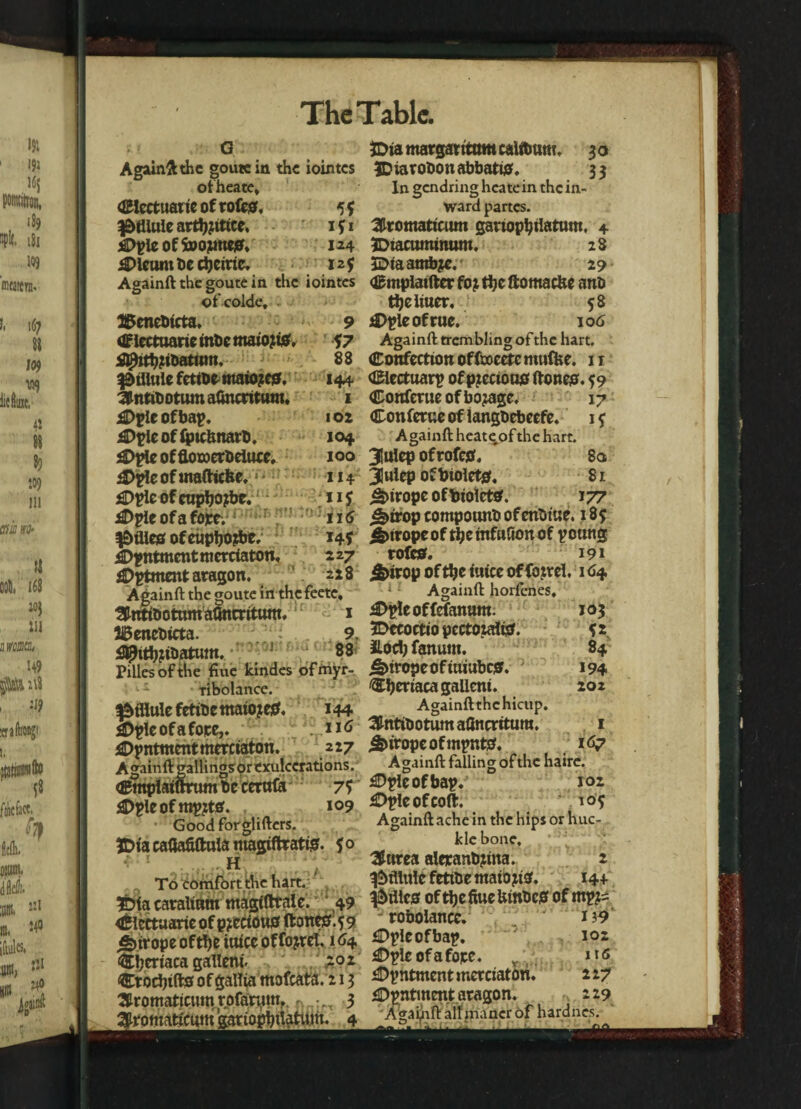 The Table.
G
Against the goute in the iointes
of heate,
Electuarie of roses. 55
Pillule arthritice. 151
Oyle of Woormes. 124
Oleum de cheirie. 125
Against the goute in the iointes
of colde,
Benedicta. 9
Electuarie inde maioris. 57
Mithridatum. 88
Pillule fetide maiores. 144
Antidotum asincritum. 1
Oyle of bay. 102
Oyle of spicknard. 104
Oyle of flowerdeluce. 100
Oyle of masticke. 114
Oyle of euphorbe. 115
Oyle of a foxe. 116
Pilles of euphorbe. 145
Oyntment merciaton. 227
Oyntment aragon. 228
Against the goute in the feete,
Antidotum asincritum. 1
Benedicta. 9
Mithridatum. 88
Pilles of the fiue kindes of myr-
ribolance.
Pillule fetide maiores. 144
Oyle of a foxe,. 116
Oyntment merciaton. 227
Against gallings or exulcerations.
Emplaistrum de cerusa 75
Oyle of myrts. 109
Good for glisters.
Dia cassafistula magistratis. 50
H
To comfort the hart.
Dia cataliom magistrale. 49
Electuarie of precious stones. 59
Sirope of the iuice of sorrel. 164
Theriaca galleni. 202
Trochists of gallia moscata. 213
Aromaticum rosarum. 3
Aromaticum gariophilatum. 4
Dia margaritum calidum. 30
Diarodon abbatis. 33
In gendring heate in the in-
ward partes.
Aromaticum gariophilatum. 4
Diacuminum. 28
Dia ambre. 29
Emplaister for the stomacke and
the liuer. 58
Oyle of rue. 106
Against trembling of the hart.
Confection of sweete muske. 11
Electuary of precious stones. 59
Conserue of borage. 17
Conserue of langdebeefe. 15
Against heate of the hart.
Julep of roses. 80
Julep of violets. 81
Sirope of violets. 177
Sirop compound of endiue. 185
Sirope of the infusion of young
roses. 191
Sirop of the iuice of sorrel. 164
Against horsenes,
Oyle of sesanum. 103
Decoctio pectoralis. 52
Loch sanum. 84
Sirope of iuiubes. 194
Theriaca galleni. 202
Against the hicup.
Antidotum asincritum. 1
Sirope of mynts. 167
Against falling of the haire.
Oyle of bay. 102
Oyle of cost. 105
Against ache in the hips or huc-
kle bone,
Aurea alexandrina. 2
Pillule fetide maioris. 144
Pilles of the fiue kindes of myr-
robolance. 139
Oyle of bay. 102
Oyle of a foxe. 116
Oyntment merciaton. 227
Oyntment aragon. 229
Against all maner of hardnes.